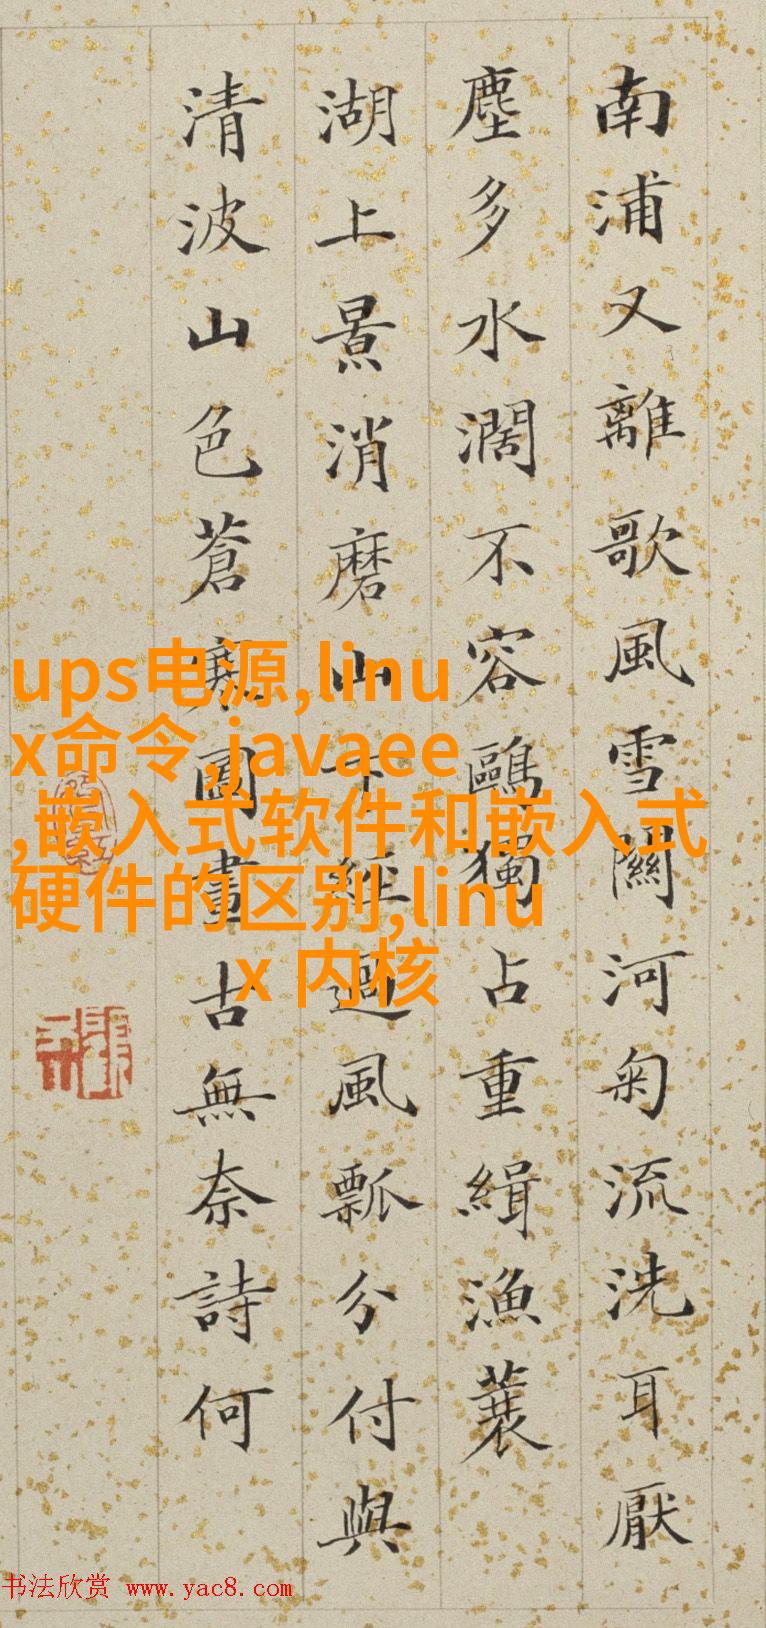 南浦又離歌風雪關河匊流洗耳厭
塵多水濶不容鷗獨占重緝漁蓑
湖上景消磨山下經過風瓢分付與
清波山色蒼寒圖畫古無奈詩何
ups电源,linu
x命令,javaee
,嵌入式软件和嵌入式
硬件的区别,linu
x 内核
书法欣赏 www.yac8.com